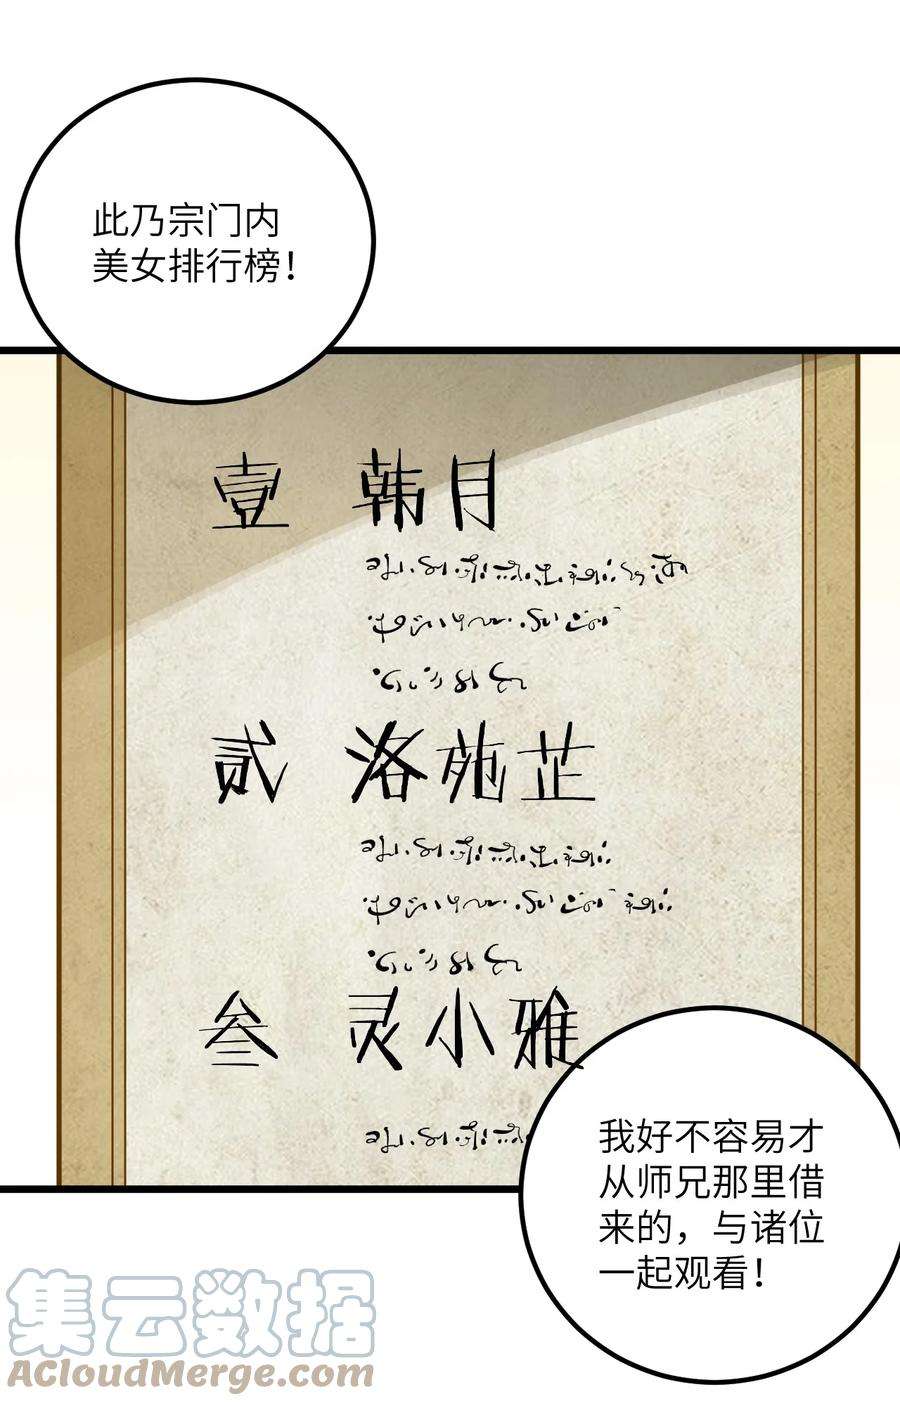 此乃宗门内
美女排行榜！
壹 韩月
贰 洛苑芷
叁 灵小雅
我好不容易才
从师兄那里借
来的，与诸位
一起观看！
集云数据
ACloudMerge.com